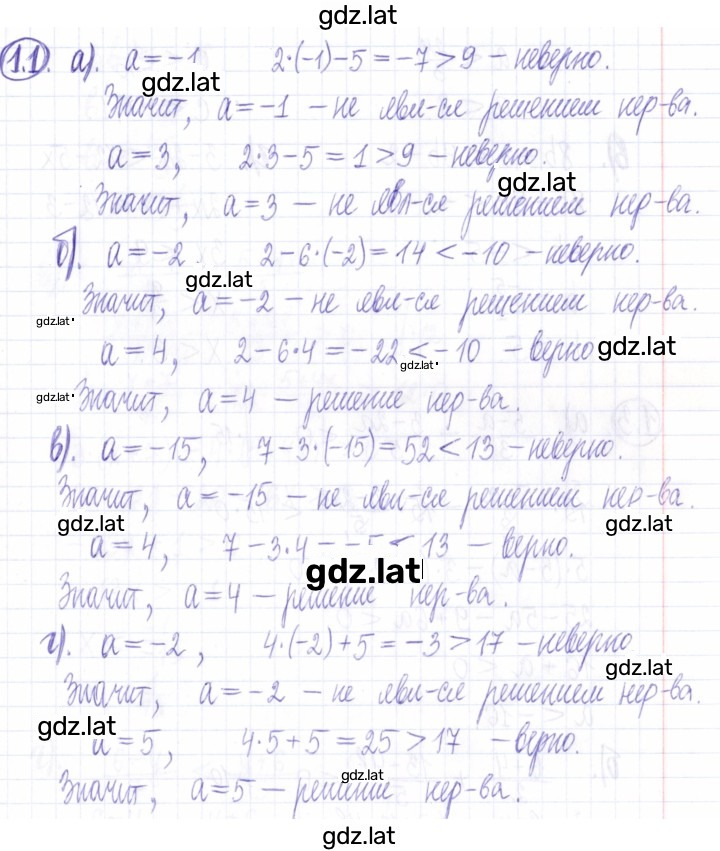 gdz.lat
1.1. а). a = -1 2·(-1)-5 = -7 > 9 - неверно.
gdz.lat
Значит, a = -1 - не явл-ся решением нер-ва.
a = 3, 2·3-5 = 1 > 9 - неверно.
gdz.lat
Значит, a = 3 - не явл-ся решением нер-ва.
б). a = -2 2-6·(-2) = 14 < -10 - неверно.
gdz.lat
Значит, a = -2 - не явл-ся решением нер-ва.
gdz.lat
a = 4, 2-6·4 = -22 < -10 - верно
gdz.lat
gdz.lat
gdz.lat
Значит, a = 4 - решение нер-ва.
в). a = -15, 7-3·(-15) = 52 < 13 - неверно.
Значит, a = -15 - не явл-ся решением нер-ва.
gdz.lat gdz.lat
a = 4, 7-3·4 = -5 < 13 - верно.
gdz.lat
Значит, a = 4 - решение нер-ва.
г). a = -2, 4·(-2)+5 = -3 > 17 - неверно
gdz.lat
Значит, a = -2 - не явл-ся решением нер-ва.
gdz.lat
a = 5, 4·5+5 = 25 > 17 - верно.
gdz.lat
Значит, a = 5 - решение нер-ва.
gdz.lat